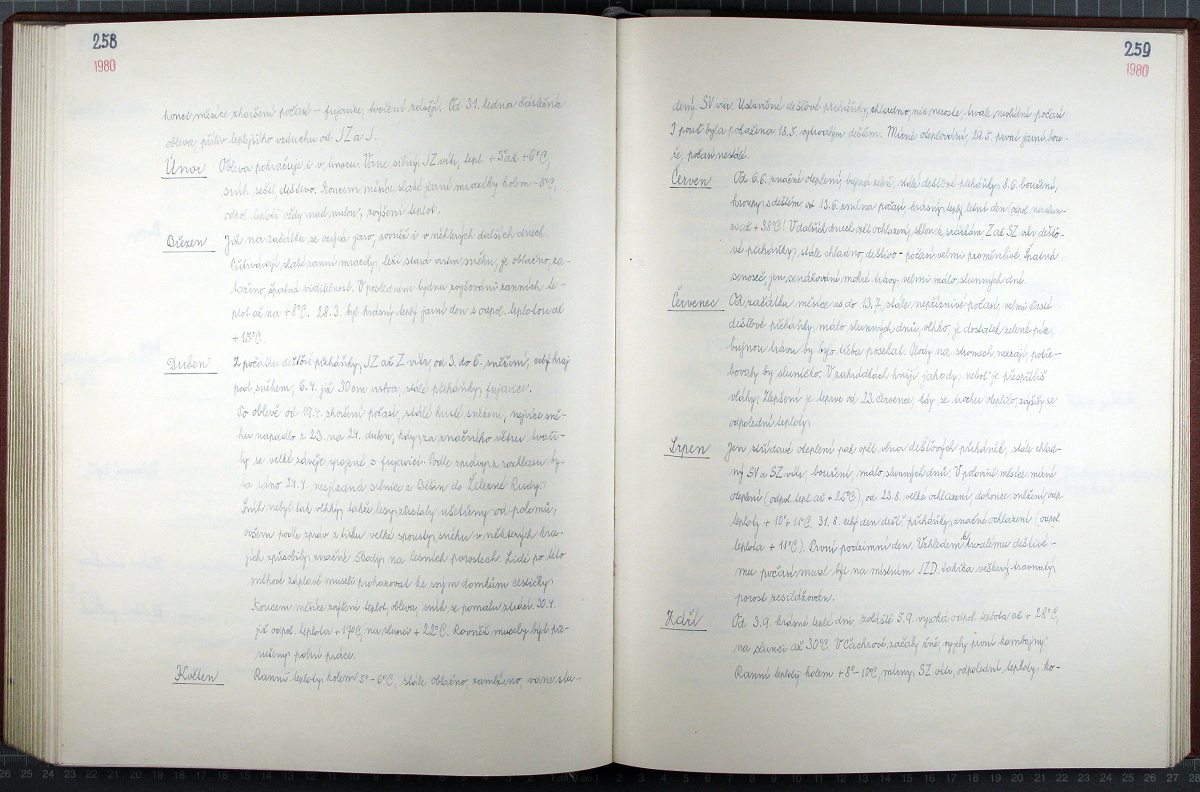 258
1980
konci měsíce zhoršení počasí - fujavice, tvoření závějí. Od 31. ledna částečná
obleva, příliv teplejšího vzduchu od JZ a J.
Únor Obleva pokračuje i v únoru. Vane silný JZ vítr, tepl. +3° až +6°C,
sníh sešel, deštivo. Koncem měsíce slabé ranní mrazíky kolem -5°C,
odpol. teploty vždy nad nulou, zvýšení teplot.
Březen Již na začátku se ozývá jaro, rovněž i v některých dalších dnech.
Přetrvávají slabé ranní mrazíky, leží stará vrstva sněhu, je oblačno, za-
taženo, špatná viditelnost. V posledním týdnu zvyšování ranních te-
plot až na +8°C. 28.3. byl krásný teplý jarní den s odpol. teplotou až
+15°C.
Duben Z počátku dešťové přeháňky, JZ až Z vítr, od 3. do 6. sněžení, celý kraj
pod sněhem, 6.4. již 30 cm vrstva, stálé přeháňky, fujavice.
Po oblevě od 19.4. zhoršení počasí, stálé husté sněžení, nejvíce sně-
hu napadlo z 23. na 24. duben, kdy za značného větru tvoři-
ly se velké závěje spojené s fujavicí. Podle zprávy z rozhlasu by-
la ráno 24.4. nesjízdná silnice z Běšin do Železné Rudy.
Sníh nebyl tak vlhký, takže lesy zůstaly ušetřeny od polomů,
ovšem podle zpráv z tisku velké spousty sněhu v některých kra-
jích způsobily značné škody na lesních porostech. Lidé po této
sněhové záplavě museli prohazovat ke svým domkům cestičky.
Koncem měsíce zvýšení teplot, obleva, sníh se pomalu ztrácí. 30.4.
již odpol. teplota +17°C, na slunci +22°C. Rovněž musely být pře-
rušeny polní práce.
Květen Ranní teploty kolem 5°-6°C, stále oblačno, zamlženo, vane stu-
259
1980
dený SV vítr. Ustavičné dešťové přeháňky, chladno, nic neroste, trvale nevlídné počasí
I pouť byla pokažena 18.5. vytrvalým deštěm. Mírné oteplování, 29.5. první jarní bou-
ře, počasí nestálé.
Červen Od 6.6. značné oteplení, bujná zeleň, stálé dešťové přeháňky, 8.6. bouření,
kroupy s deštěm, od 13.6. změna počasí, krásný, teplý letní den (odpol. na slun-
ci až +38°C)! V dalších dnech opět ochlazení, sklon k srážkám, Z až SZ vítr dešťo-
vé přeháňky, stále chladno, deštivo - počasí velmi proměnlivé. Špatná
senoseč, jen sendkování mokré trávy, velmi málo slunných dní.
Červenec Od začátku měsíce až do 13.7. stále nepříznivé počasí, velmi časté
dešťové přeháňky, málo slunných dnů, vlhko, je dostatek zelené píce,
bujnou trávu by bylo třeba posekat. Plody na stromech nezrají, potře-
bovaly by sluníčko. V zahrádkách hnijí jahody, neboť je přespříliš
vláhy. Zlepšení je teprve od 23. července, kdy se trochu oteplilo, zvýšily se
odpolední teploty.
Srpen Jen střídavé oteplení, pak opět vlna dešťových přeháněk, stále chlad-
ný SV a SZ vítr, bouření, málo slunných dnů. V polovině měsíce mírné
oteplení (odpol. tepl. až +25°C), od 23.8. velké ochlazení, dokonce sněžení, odp.
teploty +10°+11°C, 31.8. celý den dešť. přeháňky, značné ochlazení (odpol.
teplota +11°C). První podzimní den. Vzhledem k trvalému deštivé-
mu počasí musel být na místním JZD takřka veškerý travnatý
porost zesilážován.
Září Od 3.9. krásné teplé dni, zvláště 5.9. vysoká odpol. teplota až +28°C,
na slunci až 30°C. V Čachrově začaly žně, vyjely první kombajny.
Ranní teploty kolem +8°-10°C, mírný SZ vítr, odpolední teploty ko-